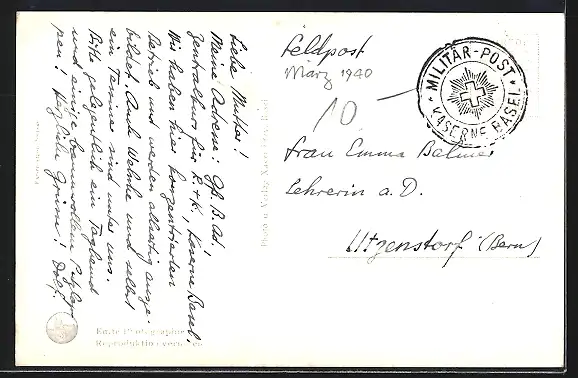 Liebe Mutter!
Meine Adresse: Gfr. B. Ad,
Zentralkurs für R.+K., Kaserne Basel.
Wir haben hier konzentrierten
Betrieb und werden allseitig ausge-
bildet. Auch Welsche und selbst
ein Tessiner sind unter uns.
Bitte gelegentlich ein Taghemd
und einige Baumwollene
pen! Herzliche Grüsse! Dolf.
Feldpost
März 1940
10
MILITÄR-POST
KASERNE BASEL
Frau Emma Balmer
Lehrerin a. D.
Utzenstorf (Bern)
Photo u. Verlag
Echte Photographie
Reproduktion